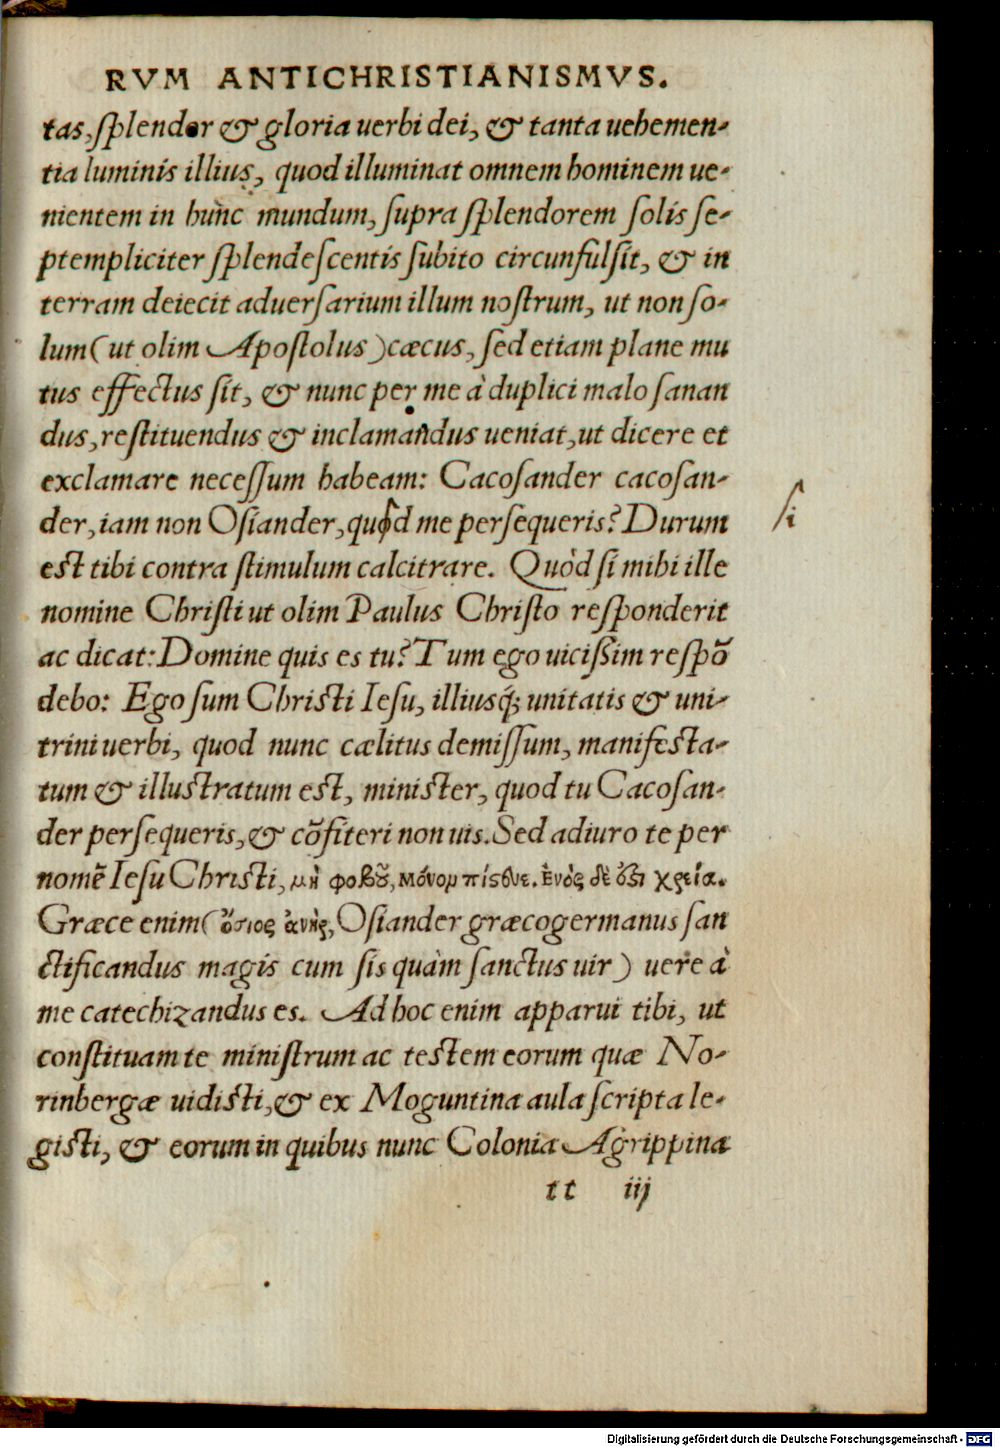 RVM ANTICHRISTIANISMVS.
tas, splendor & gloria uerbi dei, & tanta uehemen-
tia luminis illius, quod illuminat omnem hominem ue-
nientem in hunc mundum, supra splendorem solis se-
ptempliciter splendescentis subito circunfulsit, & in
terram deiecit aduersarium illum nostrum, ut non so-
lum (ut olim Apostolus) cæcus, sed etiam plane mu
tus effectus sit, & nunc per me à duplici malo sanan
dus, restituendus & inclamandus ueniat, ut dicere et
exclamare necessum habeam: Cacosander cacosan-
der, iam non Osiander, quod me persequeris? Durum
si
est tibi contra stimulum calcitrare. Quòd si mihi ille
nomine Christi ut olim Paulus Christo responderit
ac dicat: Domine quis es tu? Tum ego uicißim respõ
debo: Ego sum Christi Iesu, illiusq́; unitatis & uni-
trini uerbi, quod nunc cælitus demissum, manifesta-
tum & illustratum est, minister, quod tu Cacosan-
der persequeris, & cõfiteri non uis. Sed adiuro te per
nomẽ Iesu Christi, μὴ φοβοῦ, μόνομ πίστευε. Ἑνὸς δέ ὅζι χρεία.
Græce enim (ὅσιος ἀνὴρ, Osiander græcogermanus san
ctificandus magis cum sis quàm sanctus uir) uere à
me catechizandus es. Ad hoc enim apparui tibi, ut
constituam te ministrum ac testem eorum quæ No-
rinbergæ uidisti, & ex Moguntina aula scripta le-
gisti, & eorum in quibus nunc Colonia Agrippina
tt iij
Digitalisierung gefördert durch die Deutsche Forschungsgemeinschaft - DFG